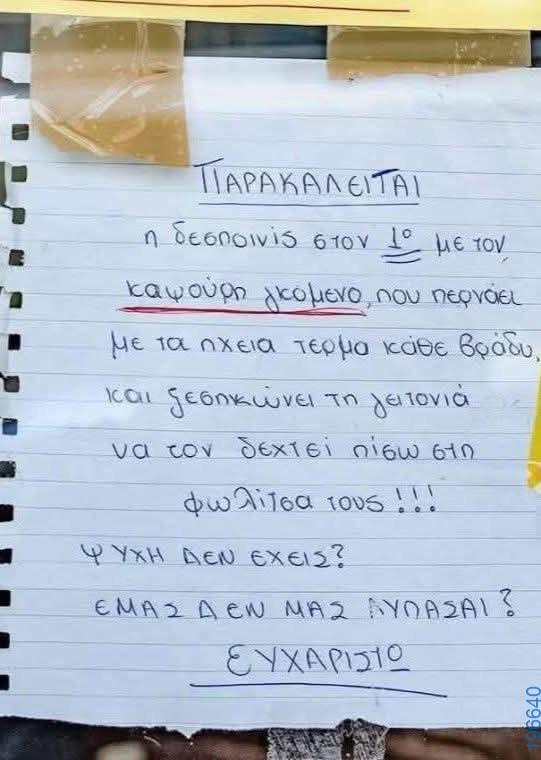 ΠΑΡΑΚΑΛΕΙΤΑΙ
η δεσποινίς στον 1ο με τον
καψούρη γκόμενο, που περνάει
με τα ηχεία τέρμα κάθε βράδυ,
και ξεσηκώνει τη γειτονιά
να τον δεχτεί πίσω στη
φωλίτσα τους!!!
ΨΥΧΗ ΔΕΝ ΕΧΕΙΣ?
ΕΜΑΣ ΔΕΝ ΜΑΣ ΛΥΠΑΣΑΙ?
ΕΥΧΑΡΙΣΤΩ
106640